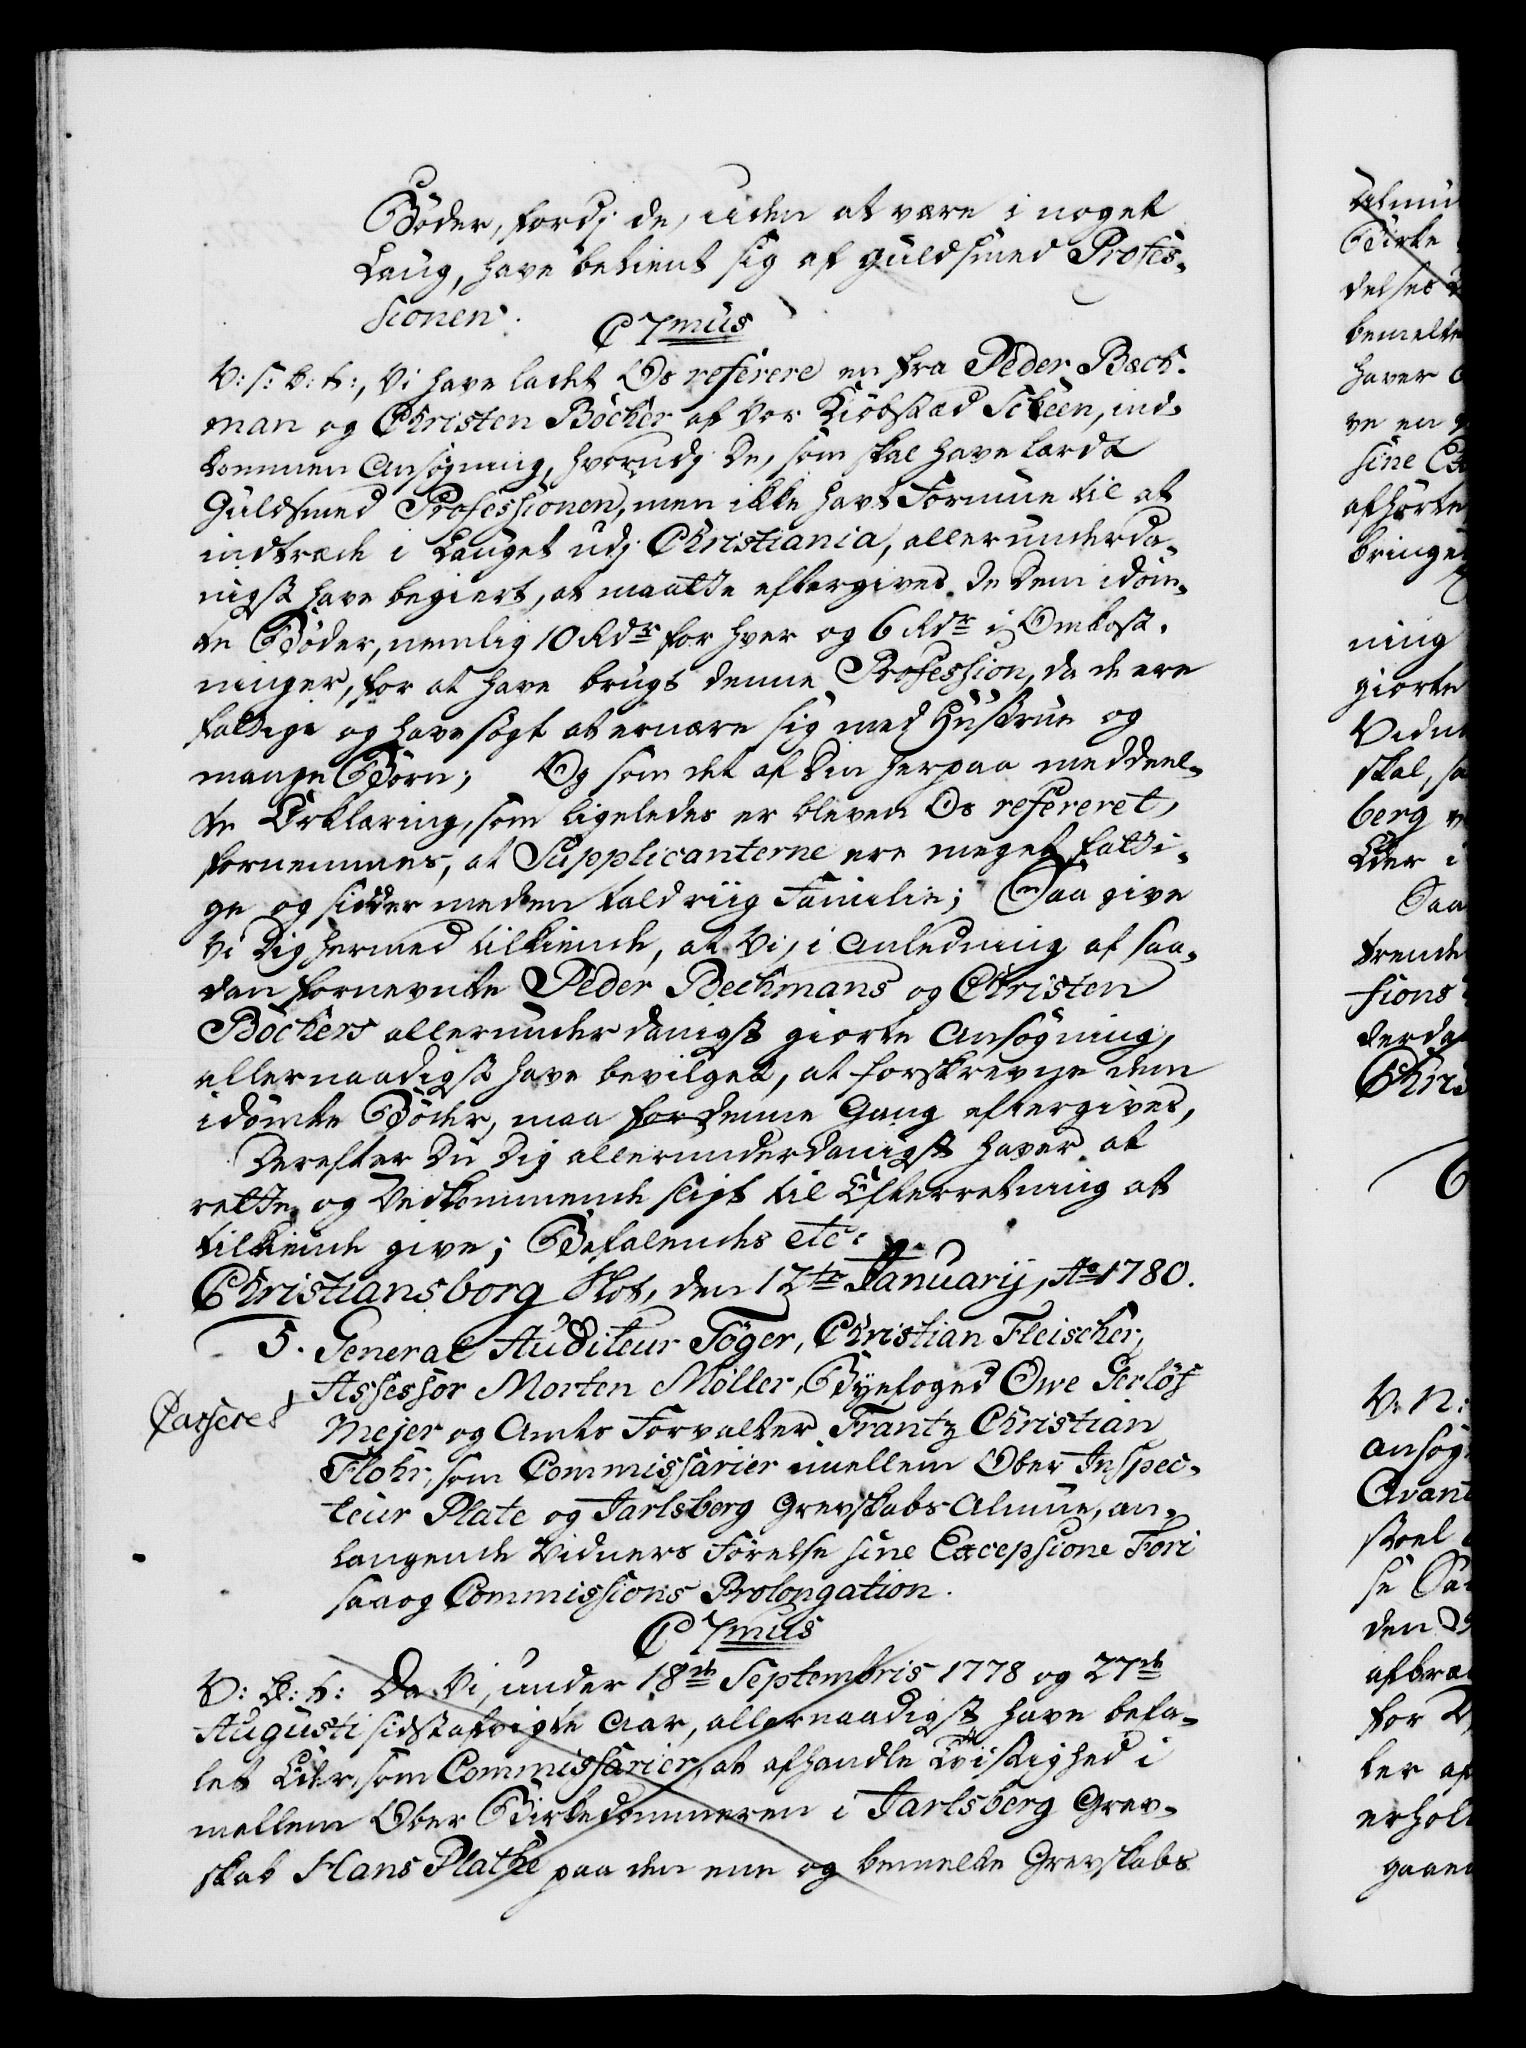 Bøder, fordj de, uden at være i noget
Laug, have betient sig af Guldsmed Profes-
sionen.
C 7mus
V: S: B: H:, Vi have ladet Os referere en fra Peder Bech-
man og Christen Böcher af Vor Kiöbstæd Scheen, ind-
kommen Ansøgning, hvorudj De, som skal have lærdt
Guldsmed Professionen, men ikke havt Formue til at
indtræde i Lauget udj Christiania, allerunderda-
nigst have begiert, at maatte eftergives de Dem idöm-
te Bøder, nemlig 10 Rdr for hver og 6 Rdr i Omkost-
ninger, for at have brugt denne Profession, da de ere
fattige og have søgt at ernære sig med Hustrue og
mange Børn; Og som det af Din herpaa meddeel-
te Erklæring, som ligeledes er bleven Os refereret,
fornemmes, at Supplicanterne ere meget fatti-
ge og sidder med en taldriig Familie; Saa give
Vi Dig hermed tilkiende, at Vi, i Anledning af saa-
dan fornevnte Peder Bechmans og Christen
Böchers allerunderdanigst giorte Ansøgning,
allernaadigst have bevilget, at forskrevne dem
idömte Bøder, maa for denne Gang eftergives,
Derefter Du Dig allerunderdanigst haver at
rette og Vedkommende sligt til Efterretning at
tilkiende give; Befalendes etc:
Christiansborg Slot, den 12te Januarij, Ao 1780.
5. General Auditeur Töger, Christian Fleischer,
Assessor Morten Møller, Byefoged Owe Gerløf
Casseret
Mejer og Amts Forvalter Frantz Christian
Flohr, som Commissarier imellem Ober Inspec-
teur Plate og Jarlsberg Grevskabs Almue, an-
langende Vidners Førelse sine Excepsione Fori
saa og Commissions Prolongation.
C 7mus
V: B: H: Da Vi, under 18de Septembris 1778 og 27de
Augusti sidstafvigte Aar, allernaadigst have befa-
let Eder, som Commissarier, at afhandle Tvistighed i
mellem Ober Birkedommeren i Jarlsberg Grev-
skab Hans Plathe paa den ene og bemelte Grevskabs